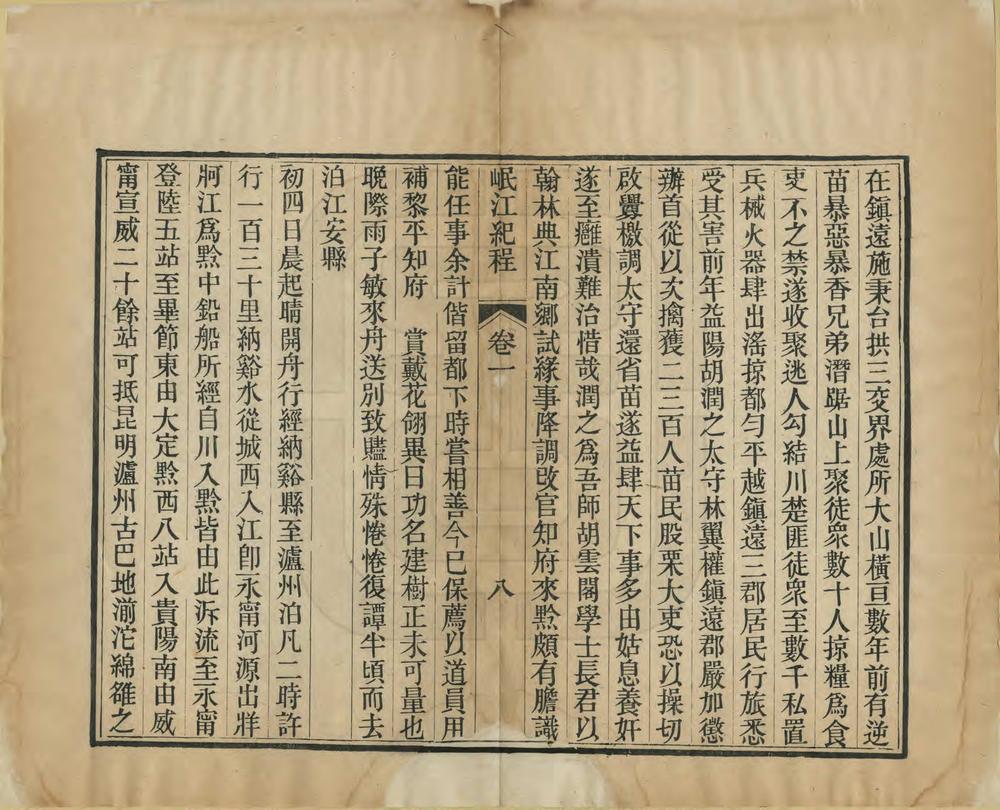 在鎮遠施秉台拱三交界處所大山橫亘數年前有逆
苗暴惡暴香兄弟潛踞山上聚徒衆數十人掠糧爲食
吏不之禁遂收聚逃人勾結川楚匪徒衆至數千私置
兵械火器肆出滛掠都勻平越鎭遠三郡居民行旅悉
受其害前年益陽胡潤之太守林翼權鎭遠郡嚴加懲
辦首從以次擒獲二三百人苗民股栗大吏恐以操切
啟釁檄調太守還省苗遂益肆天下事多由姑息養奸
遂至癰潰難治惜哉潤之爲吾師胡雲閣學士長君以
翰林典江南鄉試緣事降調改官知府來黔頗有膽識
岷江紀程 卷一 八
能任事余計偕留都下時嘗相善今已保薦以道員用
補黎平知府 賞戴花翎異日功名建樹正未可量也
晚際雨子敏來舟送別致贐情殊惓惓復譚半頃而去
泊江安縣
初四日晨起晴開舟行經納谿縣至瀘州泊凡二時許
行一百三十里納谿水從城西入江卽永甯河源出牂
牁江爲黔中鉛船所經自川入黔皆由此泝流至永甯
登陸五站至畢節東由大定黔西八站入貴陽南由威
甯宣威二十餘站可抵昆明瀘州古巴地湔沱綿雒之